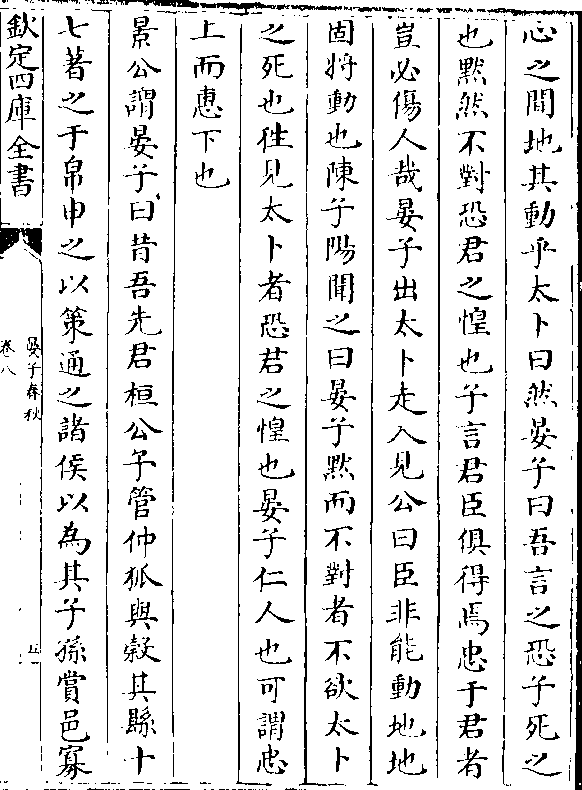 心之間地其動乎太卜曰然晏子曰吾言之恐子死之
也黙然不對恐君之惶也子言君臣俱得焉忠于君者
豈必傷人哉晏子出太卜走入見公曰臣非能動地地
固將動也陳子陽聞之曰晏子黙而不對者不欲太卜
之死也徃見太卜者恐君之惶也晏子仁人也可謂忠
上而惠下也
景公謂晏子曰昔吾先君桓公予管仲狐與榖其縣十
七著之于帛申之以策通之諸侯以為其子孫賞邑寡
欽定四庫全書
晏子春秋
卷八
五